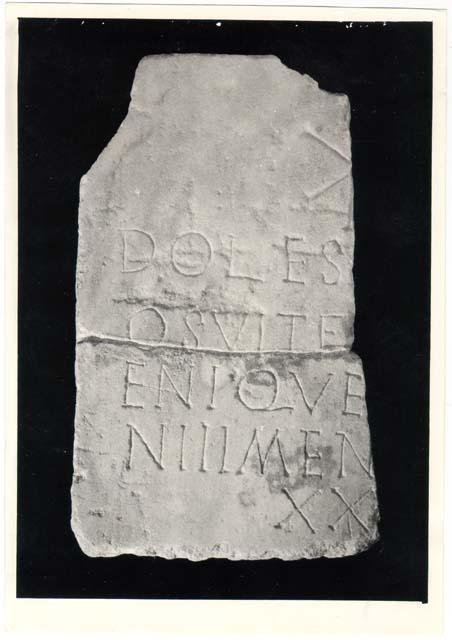 DOLES
OSVITE
ENIQVE
NIIIMEN
XX